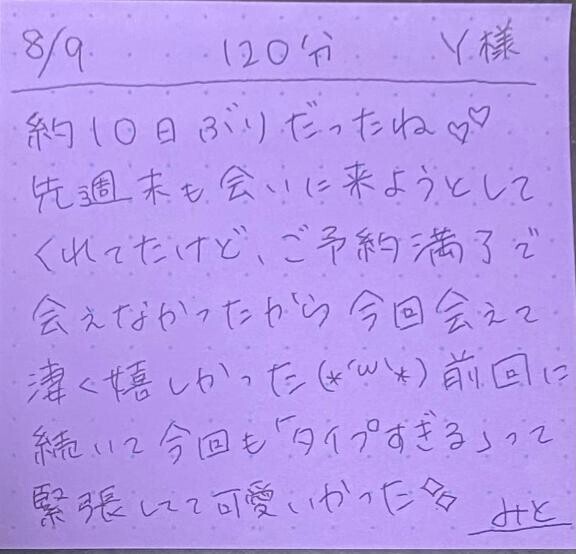 8/9 120分 Y様
約10日ぶりだったね♡♡
先週末も会いに来ようとして
くれてたけど、ご予約満了で
会えなかったから今回会えて
凄く嬉しかった(*´ω`*)前回に
続いて今回も「タイプすぎる」って
緊張してて可愛いかった✨
みと